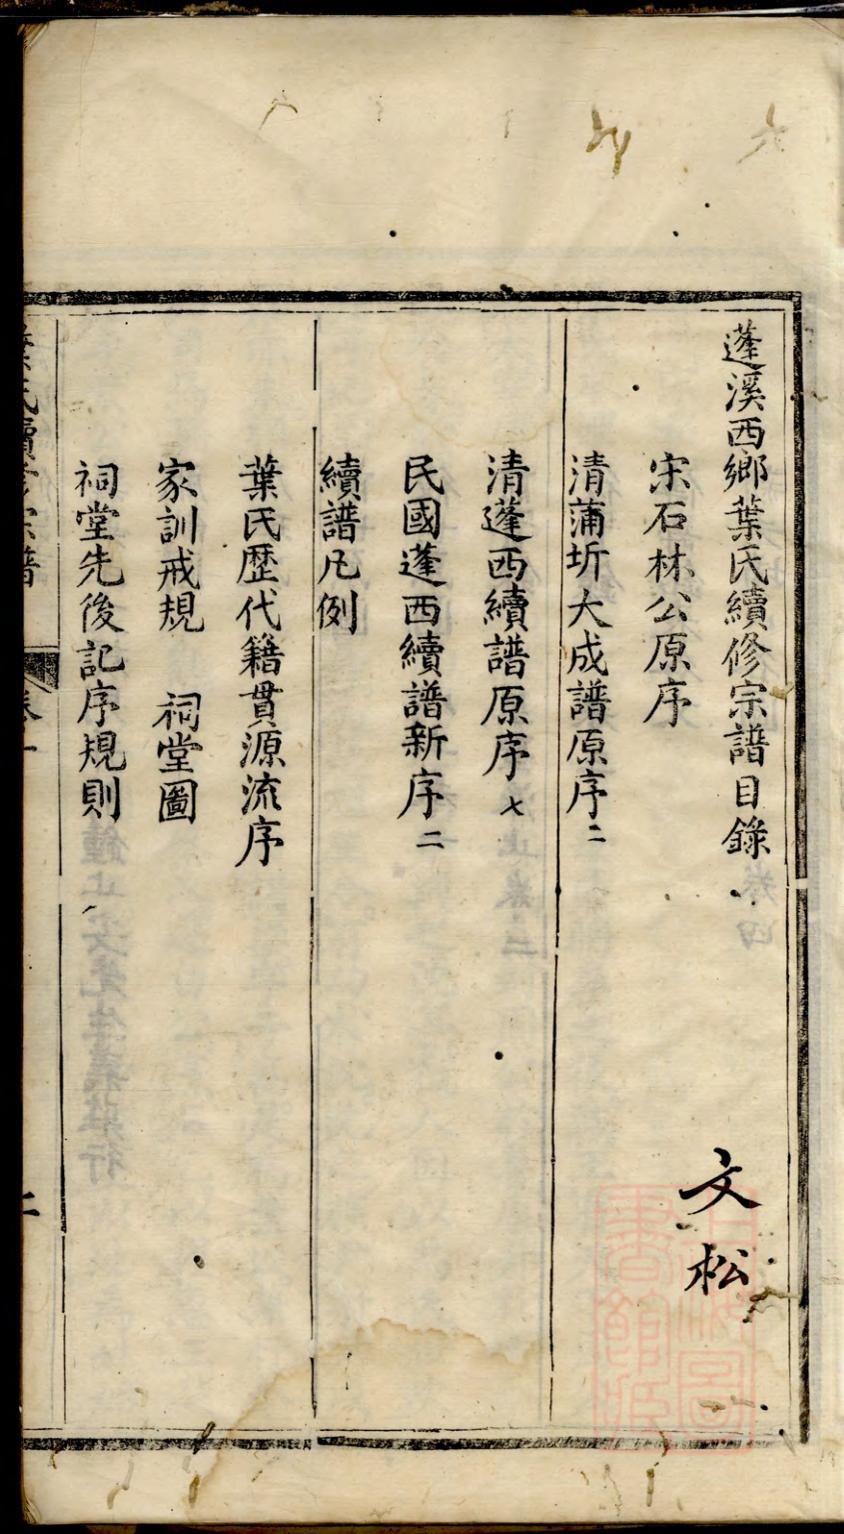 蓬溪西鄉葉氏續修宗譜目錄
宋石林公原序
清蒲圻大成譜原序二
清蓬西續譜原序七
民國蓬西續譜新序二
續譜凡例
葉氏歷代籍貫源流序
家訓戒規 祠堂圖
祠堂先後記序規則
文松